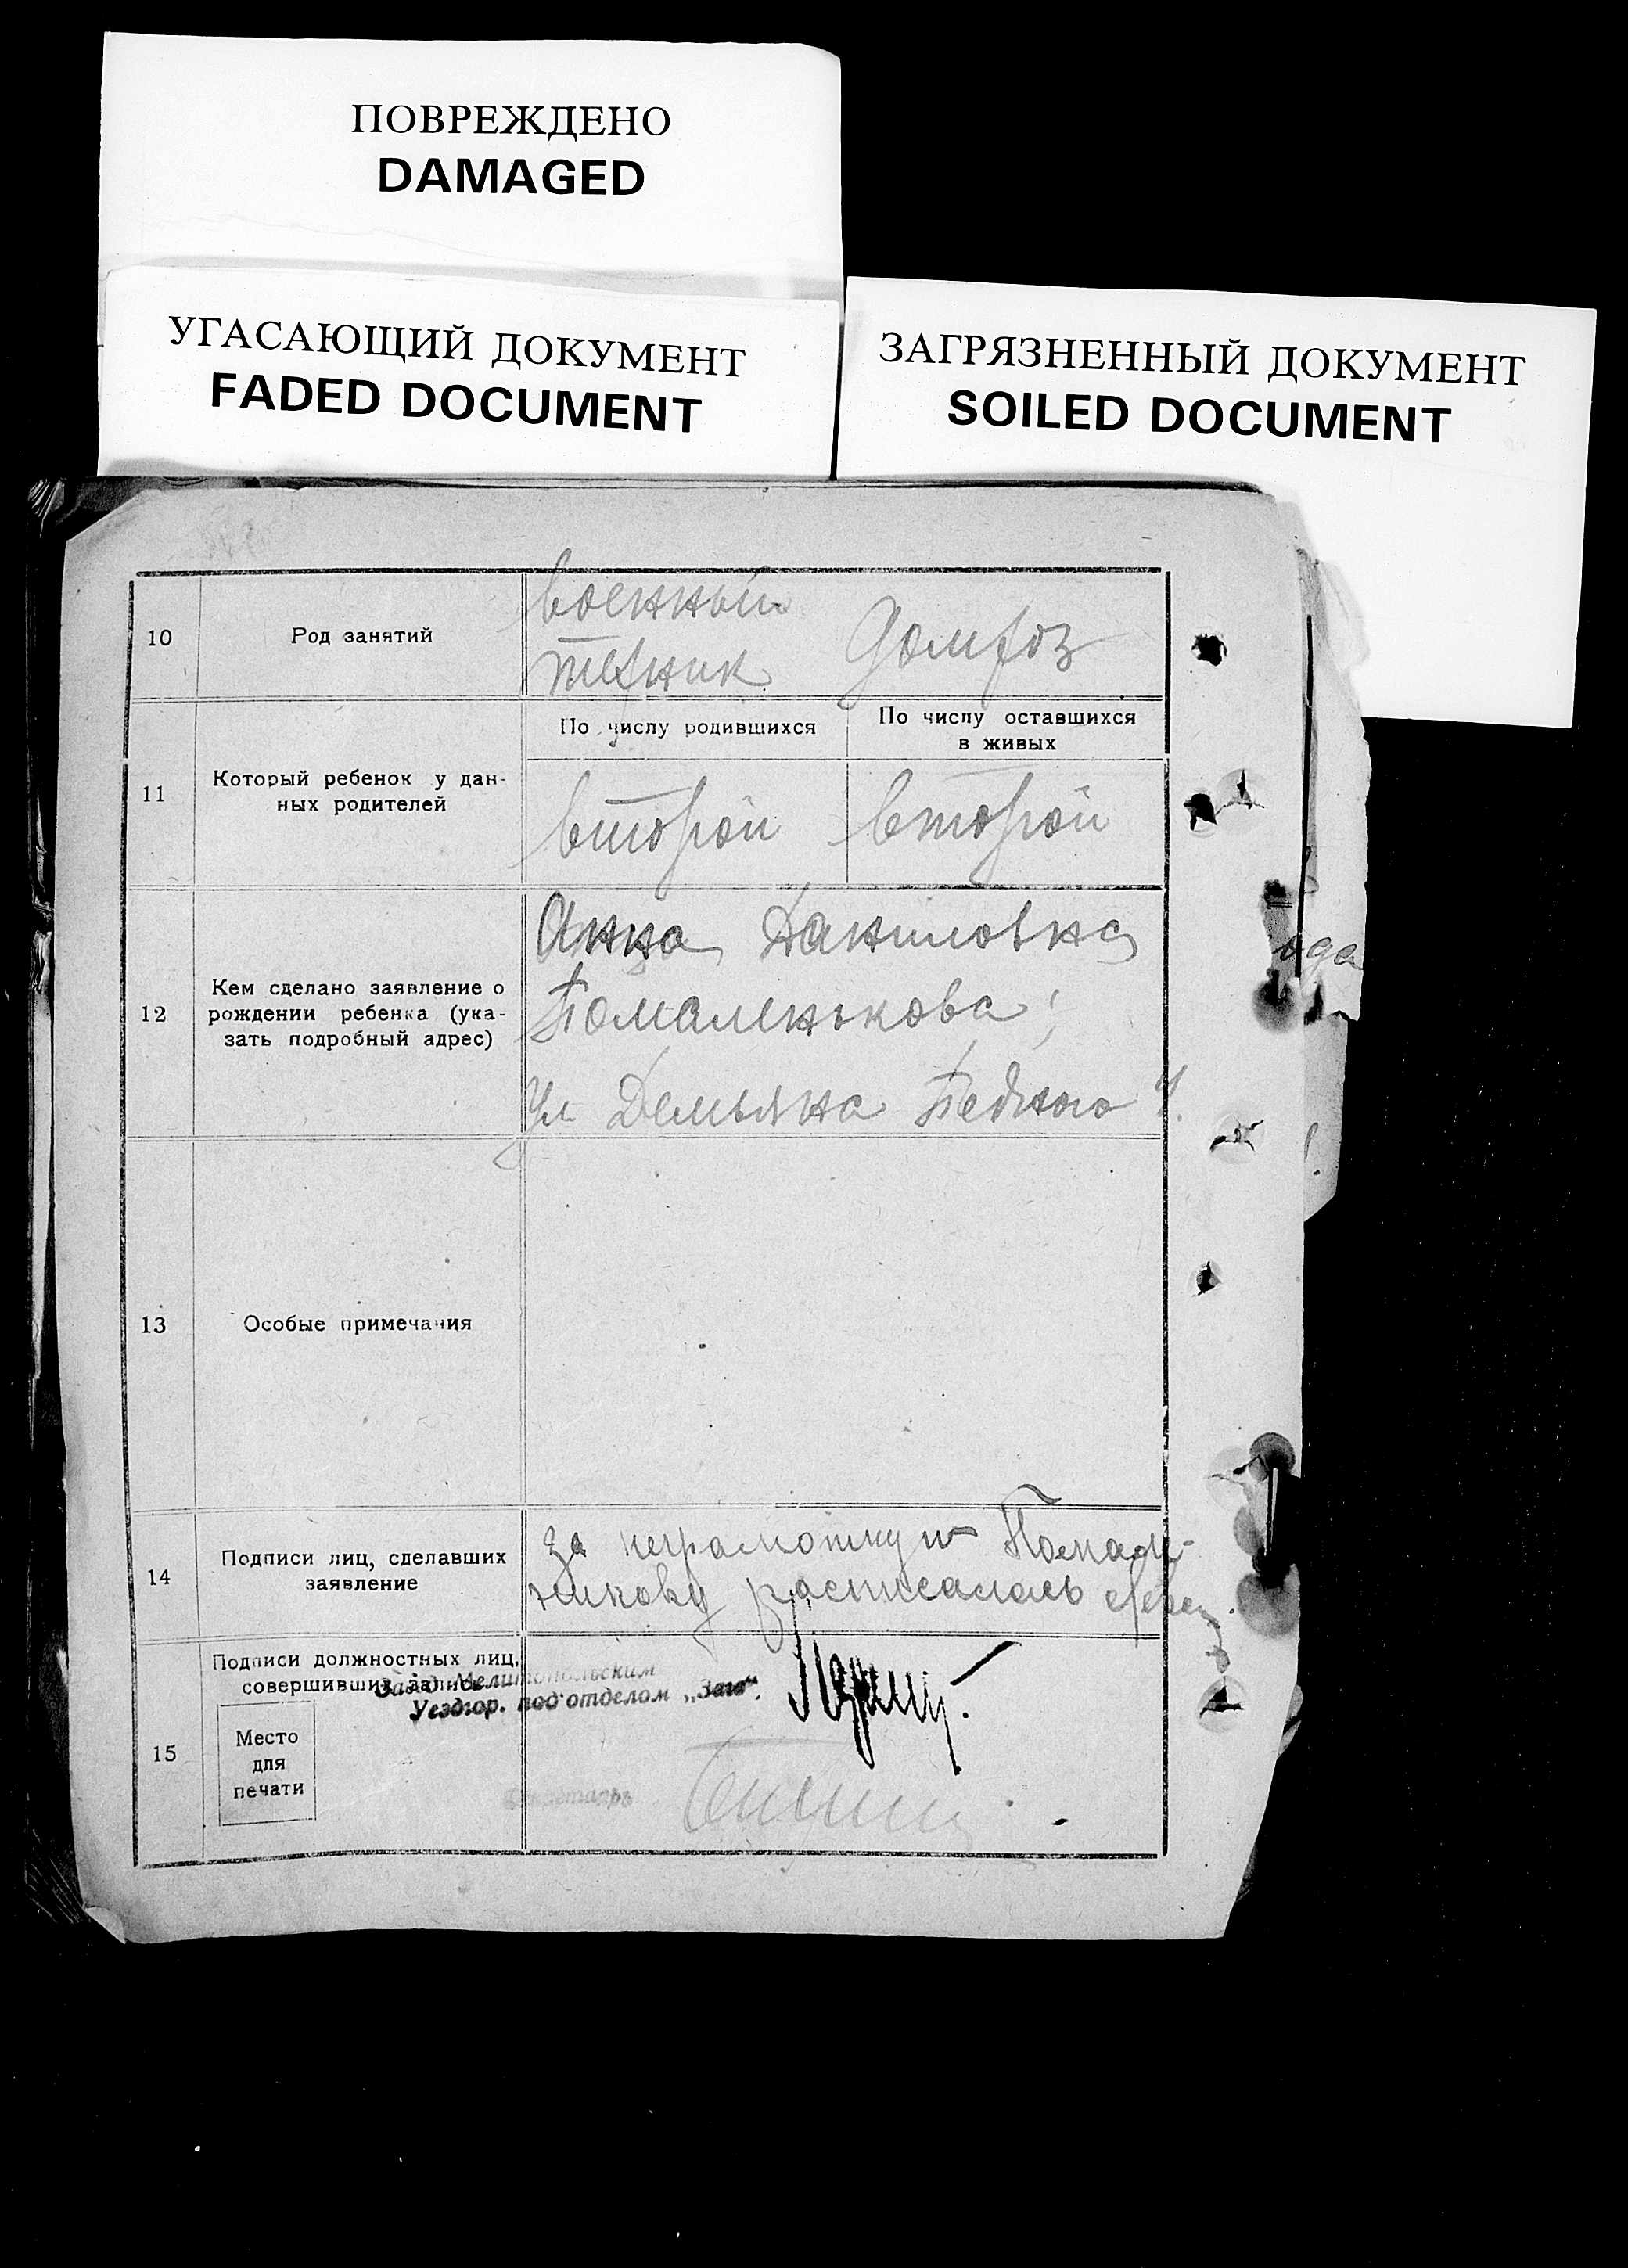 ПОВРЕЖДЕНО
DAMAGED
УГАСАЮЩИЙ ДОКУМЕНТ
FADED DOCUMENT
ЗАГРЯЗНЕННЫЙ ДОКУМЕНТ
SOILED DOCUMENT
10
Род занятий
военный
техник
домхоз
11
Который ребенок у дан-
ных родителей
По числу родившихся
По числу оставшихся
в живых
второй
второй
12
Кем сделано заявление о
рождении ребенка (ука-
зать подробный адрес)
Анна Даниловна
Помаленькова;
Ул Демьяна Бедного
ода
13
Особые примечания
14
Подписи лиц, сделавших
заявление
за неграмотную Помале-
нькову расписалась
15
Подписи должностных лиц,
совершивших запись
Зав. Мелитопольским
Уездгор. подотделом „Загс“.
Место
для
печати
Секретарь